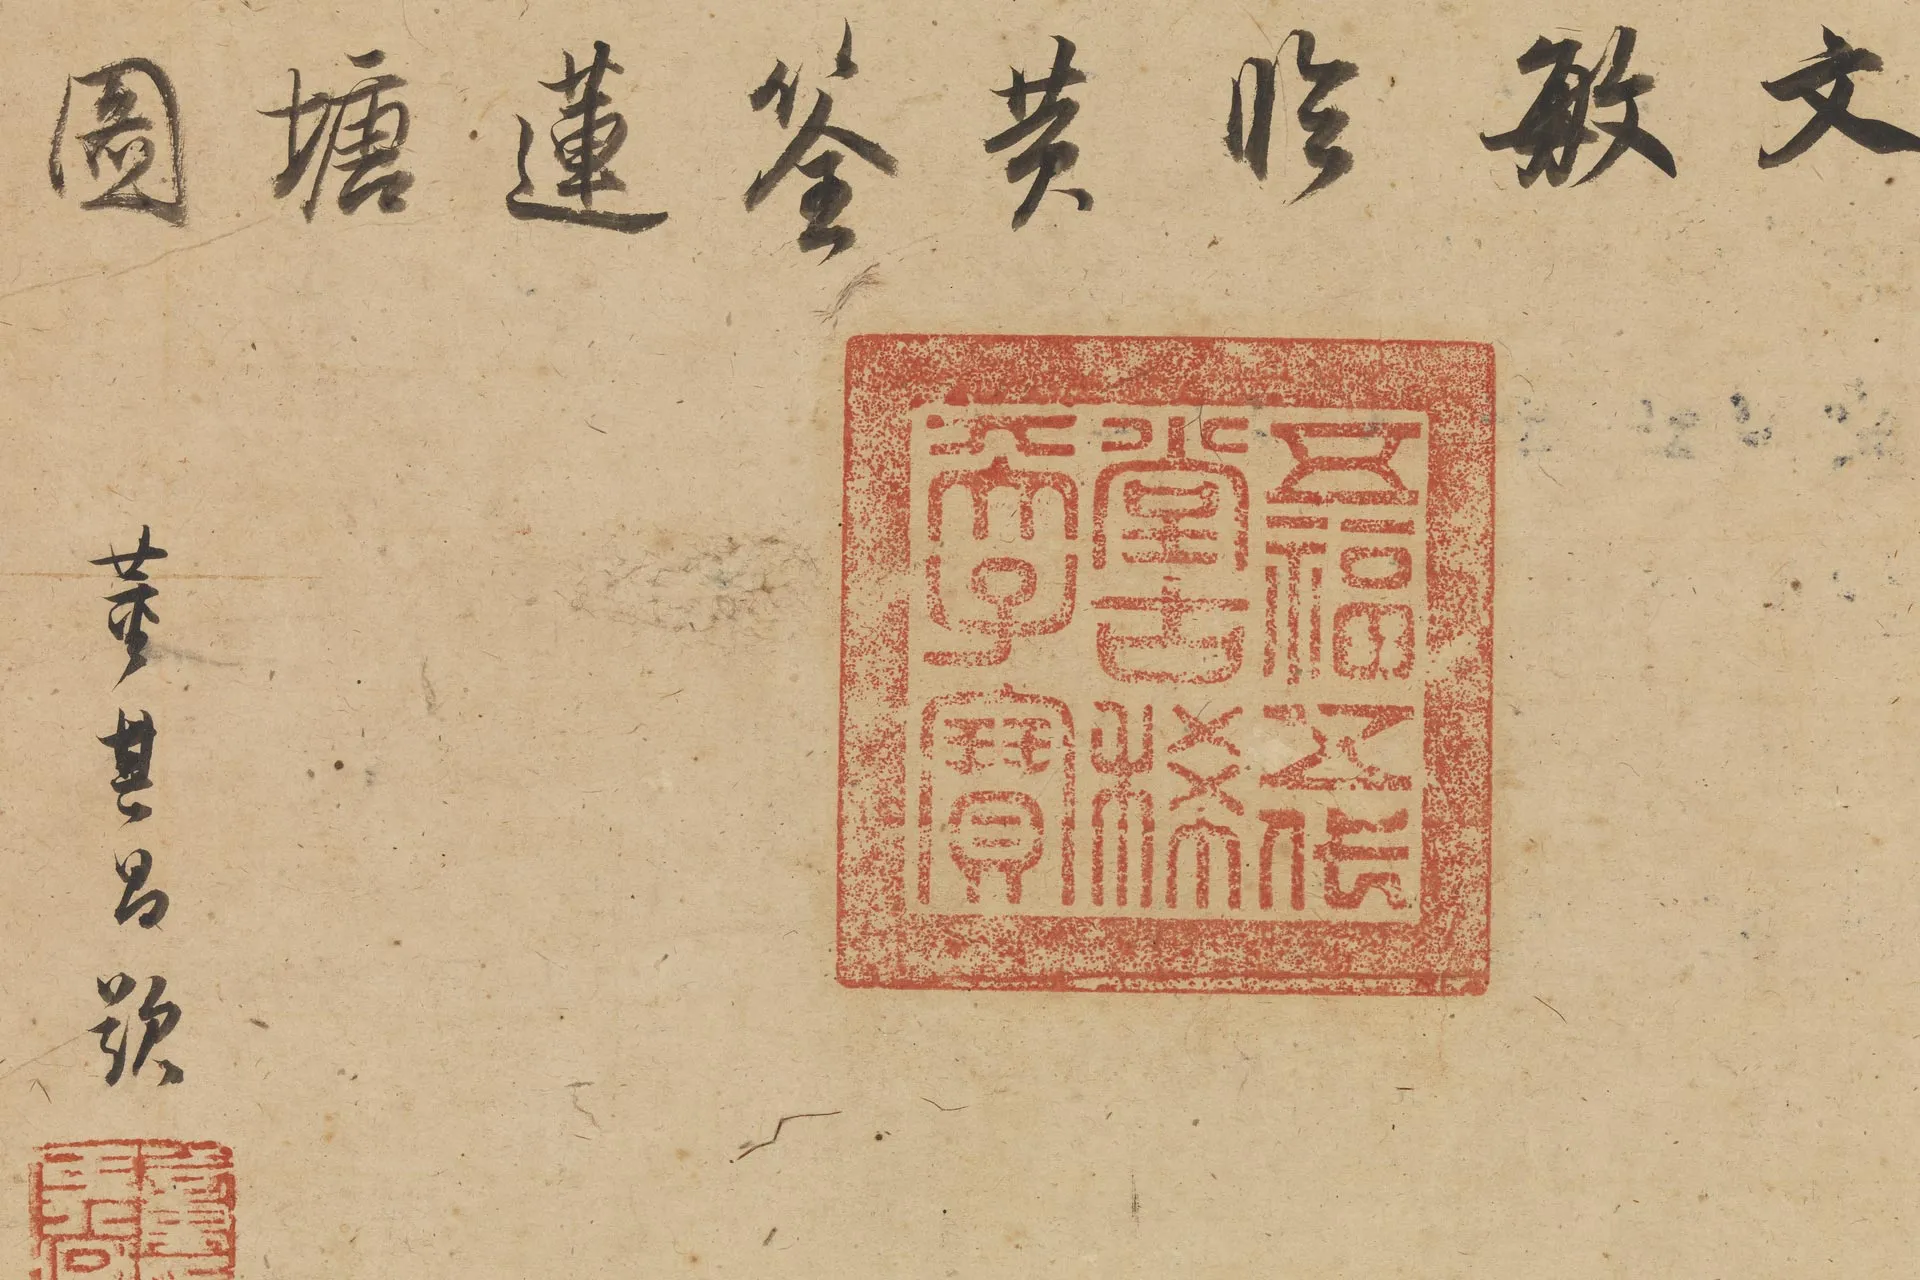 文敏臨黃筌蓮塘圖
董其昌題
五福五代堂古稀天子寶